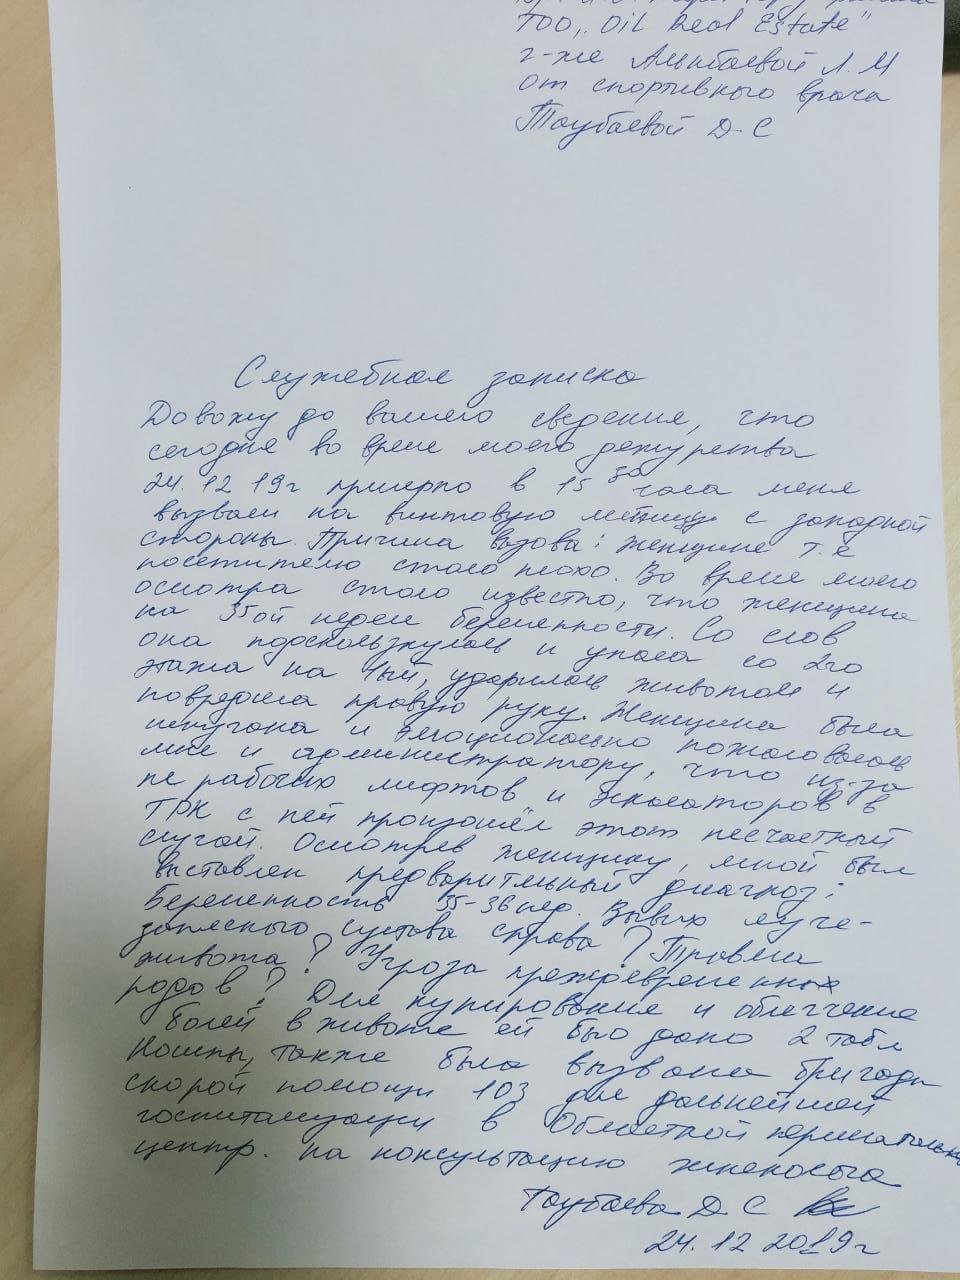 ТОО „Oil Real Estate"
г-же Алыкбаевой Л.М
от спортивного врача
Таубаевой Д-С
Служебная записка
Довожу до вашего сведения, что
сегодня во время моего дежурства
24.12 19г примерно в 15 30 часа меня
вызвали на винтовую летницу с западной
стороны. Причина вызова: женщине т.е
посетителю стало плохо. Во время моего
осмотра стало известно, что женщина
на 35ой неделе беременности. Со слов
она подскользнулась и упала со 2го
этажа на 1ый, ударилась животом и
повредила правую руку. Женщина была
испугана и эмоционально пожаловалась
мне и администратору, что из-за
не рабочих лифтов и эскалаторов в
ТРК с ней произошёл этот несчастный
случай. Осмотрев женщину, мной был
выставлен предварительный диагноз:
Беременность 35-36нед. Вывих луче-
запясного сустава справа? Травма
живота? Угроза преждевременных
родов? Для купирования и облегчение
болей в животе ей было дано 2 табл
Ношпы, также была вызвана бригада
скорой помощи 103 для дальнейшей
госпитализации в Областной перинатальный
центр. на консультацию гинеколога
Таубаева Д С
24.12 2019г